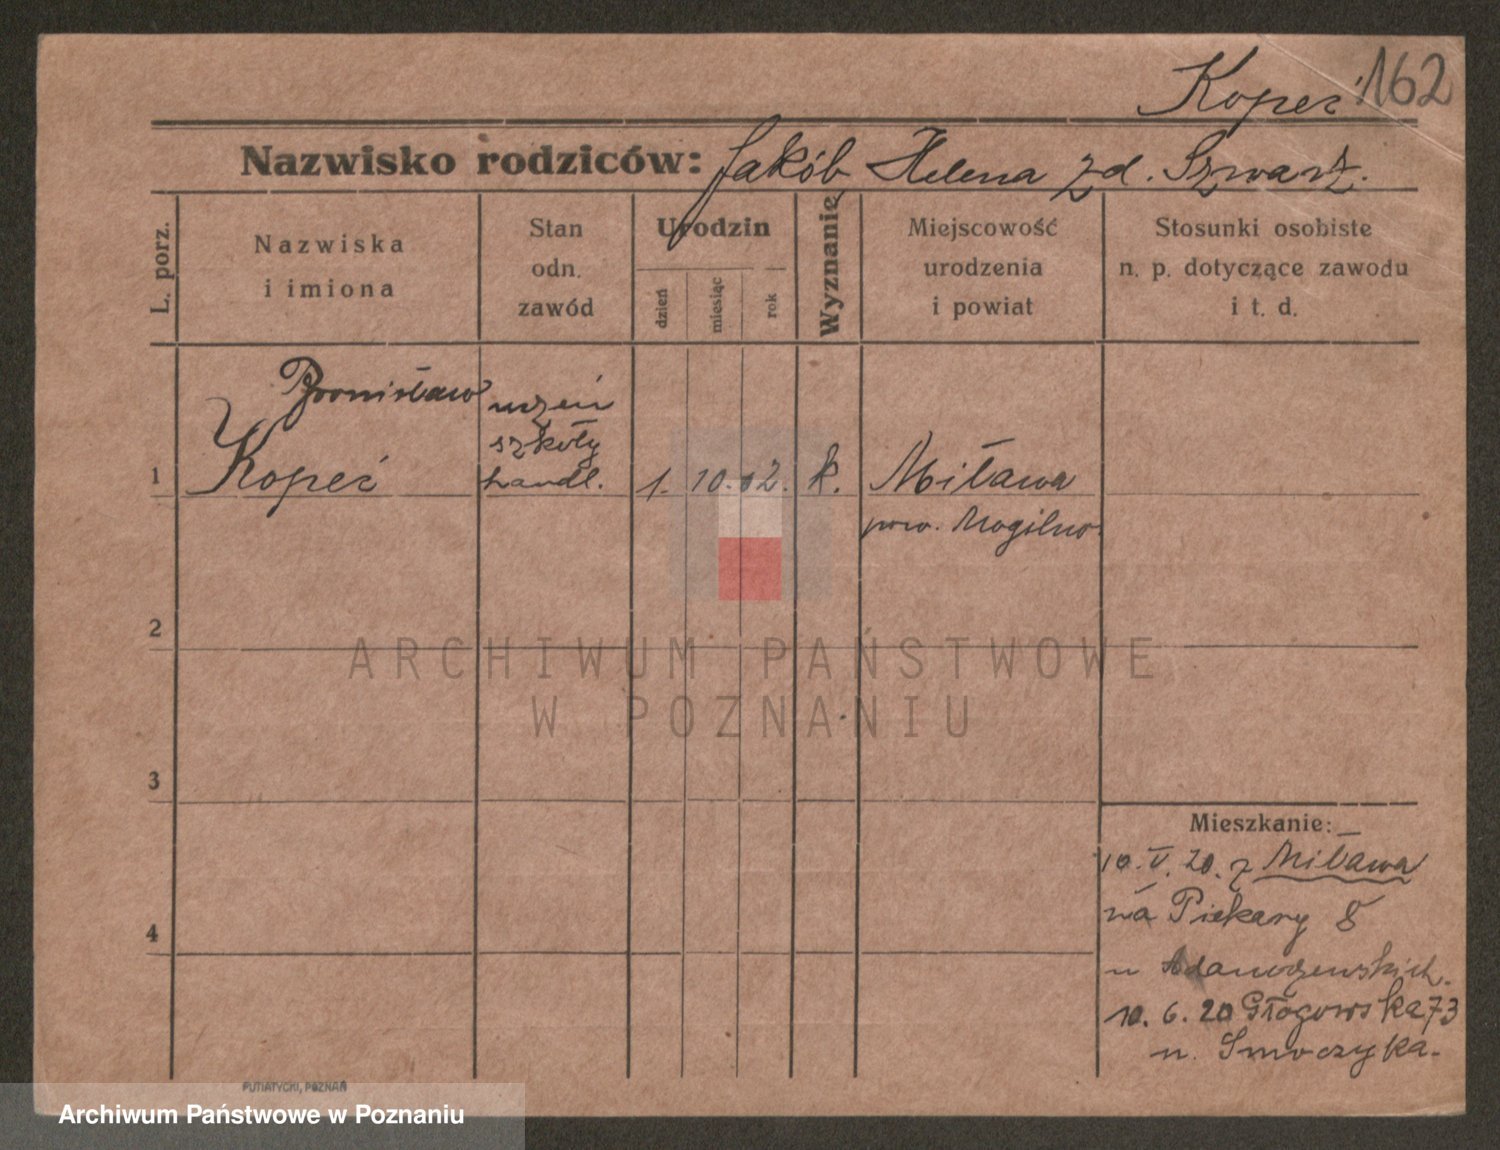 Kopeć 162
Nazwisko rodziców: Jakób Helena zd. Szwarz.
L. porz.
Nazwiska
i imiona
Stan
odn.
zawód
Urodzin
dzień
miesiąc
rok
Wyznanie
Miejscowość
urodzenia
i powiat
Stosunki osobiste
n. p. dotyczące zawodu
i t. d.
1
Bronisław
Kopeć
uczeń
szkoły
handl.
1. 10. 02.
k.
Miława
pow. Mogilno.
2
3
4
Mieszkanie:
10. V. 20. z Miława
na Piekary 8
u Adamczewskich.
10. 6. 20 Głogowska 73
u. Smoczyka.
PUTIATYCKI, POZNAŃ
ARCHIWUM PAŃSTWOWE
W POZNANIU
Archiwum Państwowe w Poznaniu